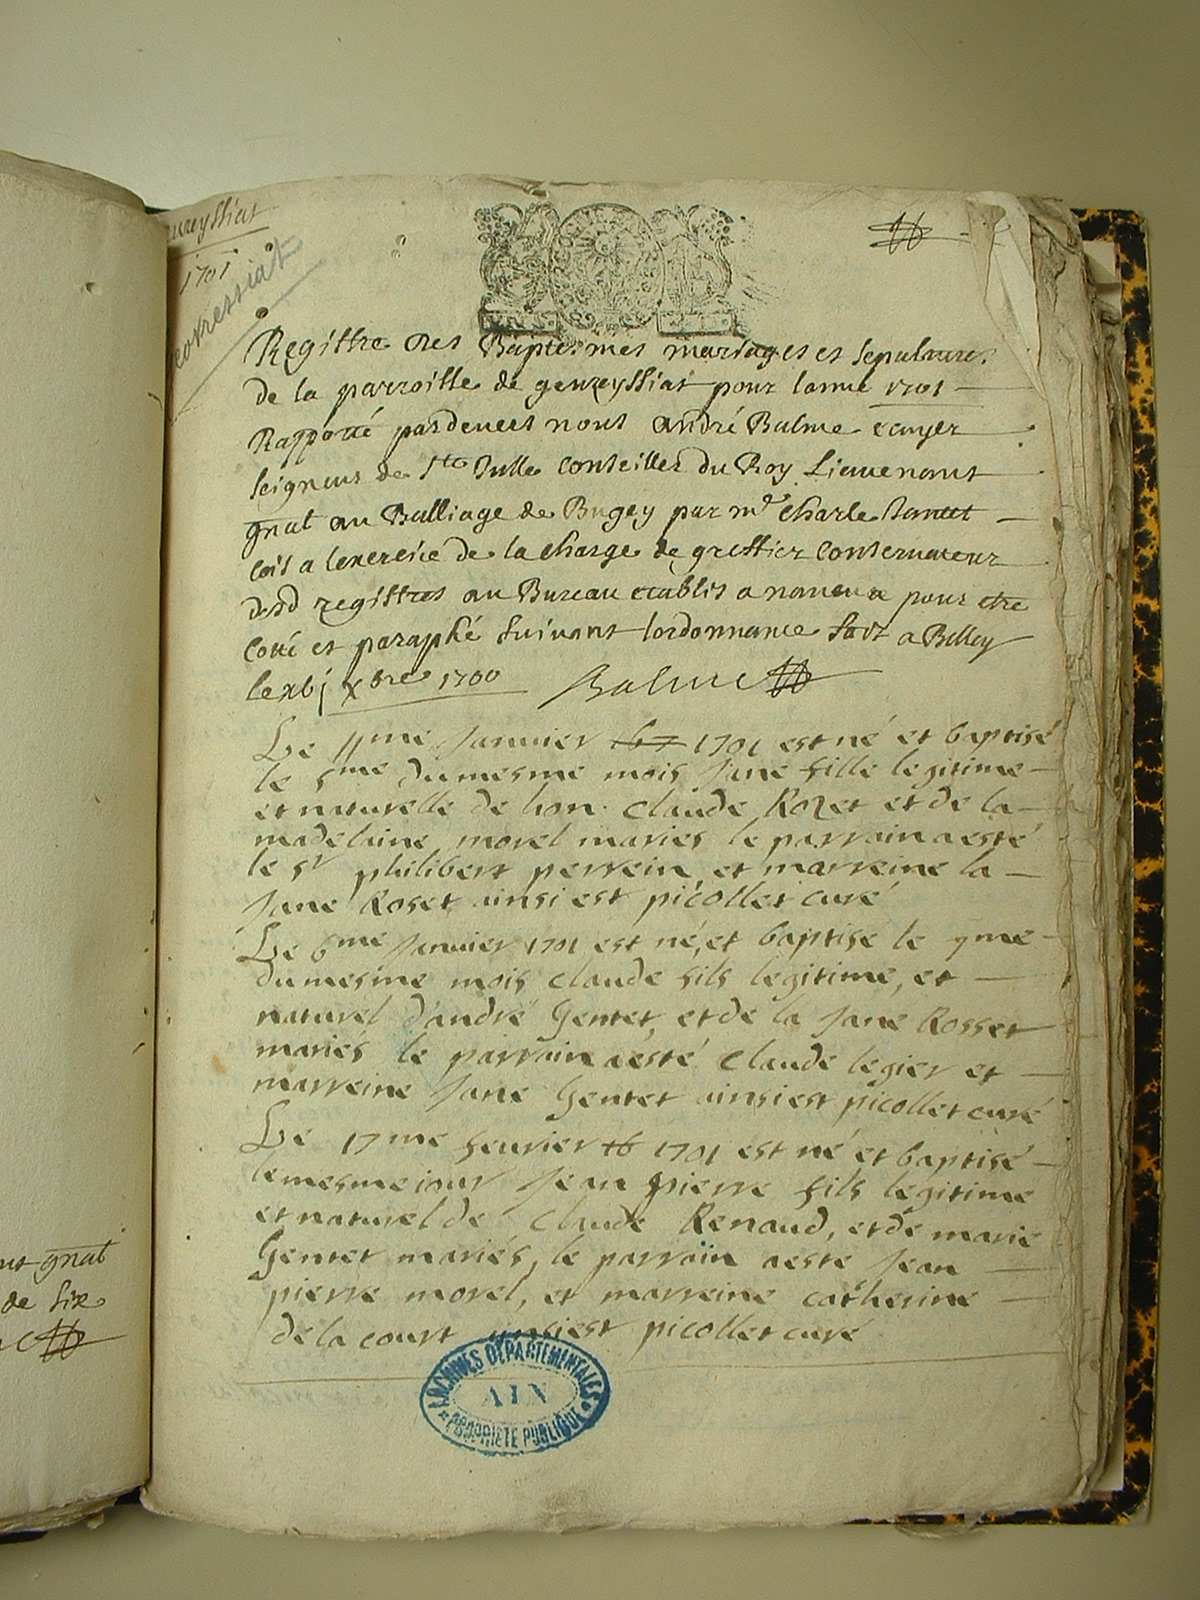 1701
corressiat
Registre des Baptesmes mariages et sepulture
de la parroisse de geureyssiat pour lanné 1701
Rapporté pardevers nous andré Balme ecuyer
seigneur de Ste Julle conseiller du Roy Lieutenant
gnal au Balliage de Bugey par mr Charle
a lexercice de la charge de greffier conservateur
desd registres au Bureau etablis a nantua pour etre
coté et paraphé suivant lordonnance fait a Belley
le xbj xbre 1700 Balme
Le 4me Janvier 1701 est né et baptisé
le 5me du mesme mois Jane fille legitime
et naturelle de hon. Claude Rozet et de la
madelaine morel maries le parrain a esté
le sr philibert perrein, et marreine la
Jane Roset ainsi est picollet curé
Le 6me Janvier 1701 est né, et baptisé le 7me
du mesme mois Claude fils legitime, et
naturel d'andré Gentet, et de la Jane Rosset
maries le parrain a esté Claude legier et
marreine Jane Gentet ainsi est picollet curé
Le 17me feurier 1701 est né et baptisé
le mesme iour Jean pierre fils legitime
et naturel de Claude Renaud, et de marie
Gentet mariés, le parrain a esté Jean
pierre morel, et marreine catherine
de la court ainsi est picollet curé
gnal
de six
ARCHIVES DÉPARTEMENTALES
AIN
PROPRIÉTÉ PUBLIQUE